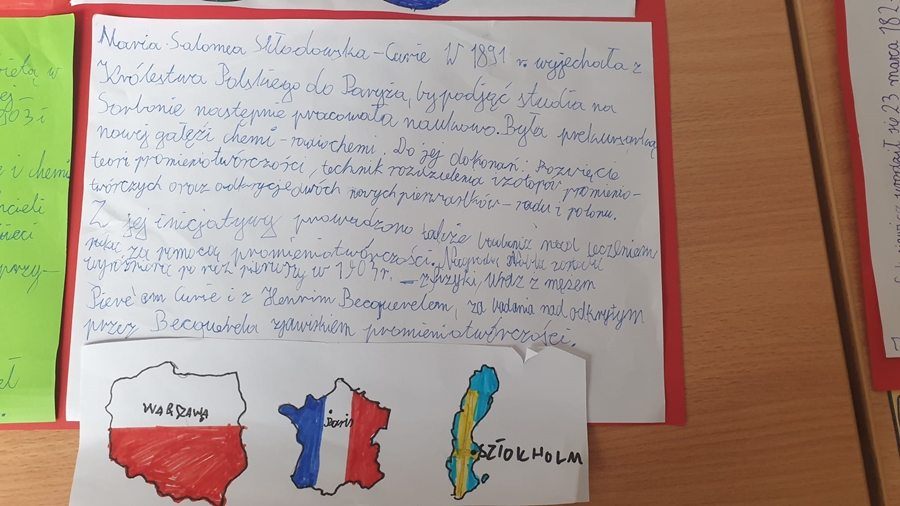 Maria Salomea Skłodowska-Curie W 1891 r. wyjechała z
Królestwa Polskiego do Paryża, by podjąć studia na
Sorbonie następnie pracowała naukowo. Była prekursorką
nowej gałęzi chemi-radiochemi. Do jej dokonań: Rozwięcie
teori promieniotwórczości, technik rozdzielenia izotopów promienio-
twórczych oraz odkrycje dwóch nowych pierwiastków - radu i polonu.
Z jej inicjatywy prowadzono także badania nad leczeniem
raka za pomocą promieniotwórczości. Nagrodą Nobla została
wyróżniona po raz pierwszy w 1903r. - z fizyki, wraz z mężem
Pierre'am Curie i z Hennim Becquerelem, za badania nad odkrytym
przez Becquerela zjawiskiem promieniotwórczości.
WARSZAWA
Paris
SZTOKHOLM
iętą w
ej-
903 i
e i chemi
ncieli
zieci
przy-
ł się 23 marca 182